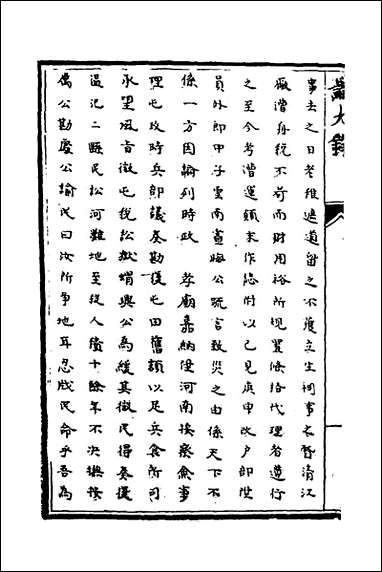 事去之日老稚遮道留之不獲立生祠事之督清江
廠漕舟稅不苛而財用裕所規置條格代理者遵行
之至今考漕運顛末作志附以己見庚申改户部陞
員外郎甲子雲南晝晦公疏言致災之由係天下不
係一方因論列時政 孝廟嘉納侵河南按察僉事
理屯政時兵部議奏勘復屯田舊額以足兵食所司
承望風旨徵屯稅訟獄蝟興公為緩其徵民得奏復
温汜二縣民訟河難地至殺人積十餘年不決撫按
属公勘處公諭民曰汝所爭地耳忍戕民命乎吾為